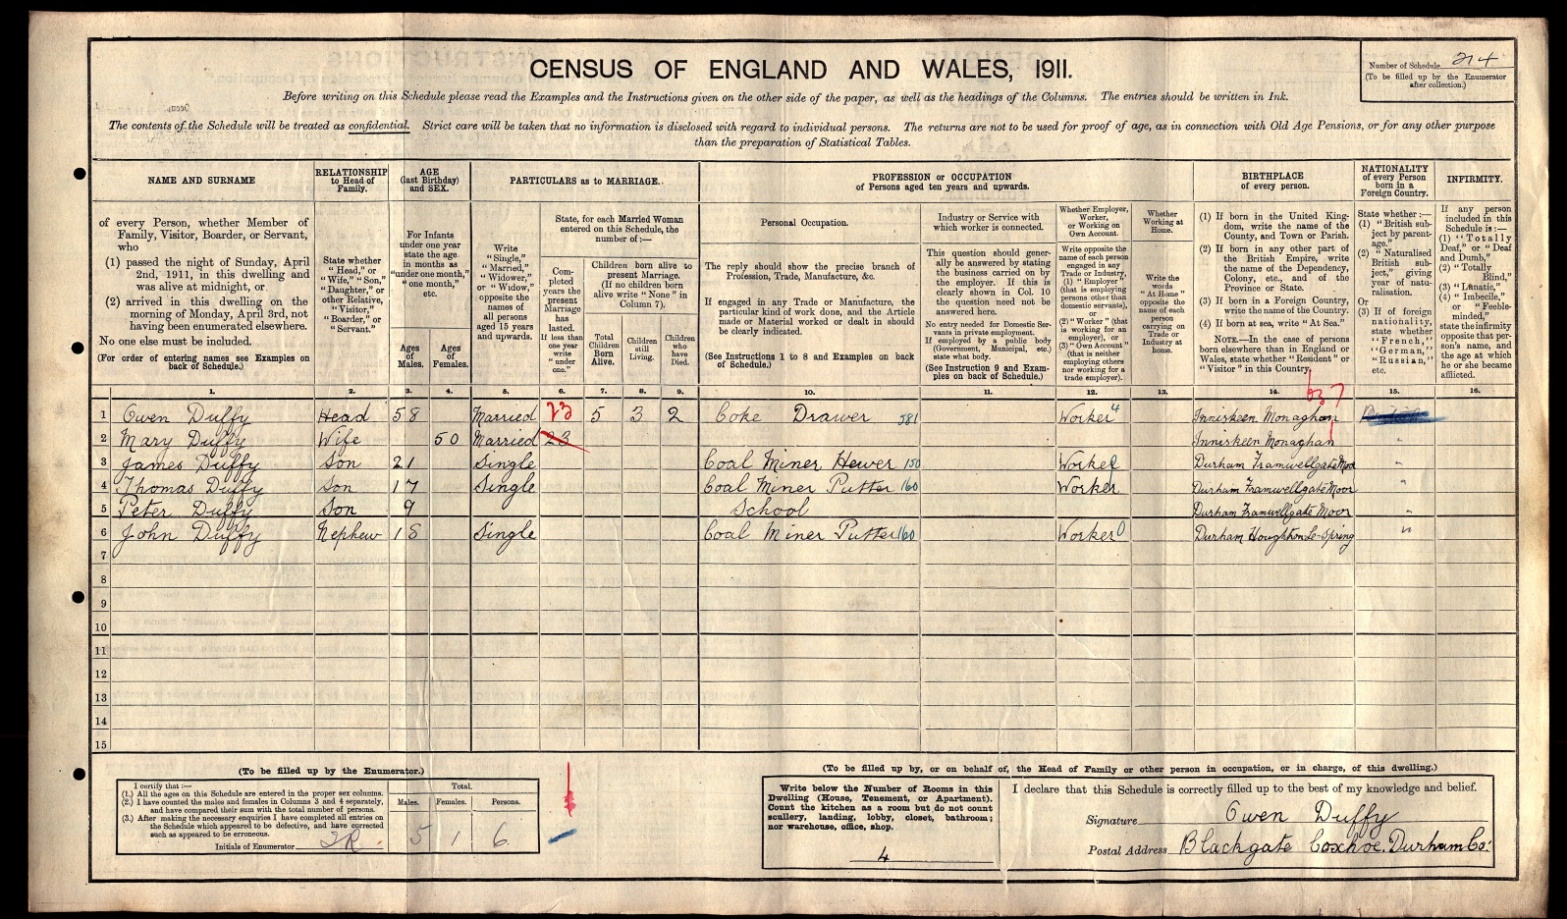 CENSUS OF ENGLAND AND WALES, 1911.
Number of Schedule 214
(To be filled up by the Enumerator after collection.)
Before writing on this Schedule please read the Examples and the Instructions given on the other side of the paper, as well as the headings of the Columns. The entries should be written in Ink.
The contents of the Schedule will be treated as confidential. Strict care will be taken that no information is disclosed with regard to individual persons. The returns are not to be used for proof of age, as in connection with Old Age Pensions, or for any other purpose
than the preparation of Statistical Tables.
NAME AND SURNAME
RELATIONSHIP to Head of Family.
AGE (last Birthday) and SEX.
PARTICULARS as to MARRIAGE.
PROFESSION or OCCUPATION of Persons aged ten years and upwards.
BIRTHPLACE of every person.
NATIONALITY of every Person born in a Foreign Country.
INFIRMITY.
of every Person, whether Member of Family, Visitor, Boarder, or Servant, who
(1) passed the night of Sunday, April 2nd, 1911, in this dwelling and was alive at midnight, or
(2) arrived in this dwelling on the morning of Monday, April 3rd, not having been enumerated elsewhere.
No one else must be included.
(For order of entering names see Examples on back of Schedule.)
State whether "Head," or "Wife," "Son," "Daughter," or other Relative, "Visitor," "Boarder," or "Servant."
For Infants under one year state the age in months as "under one month," "one month," etc.
Ages of Males.
Ages of Females.
Write "Single," "Married," "Widower," or "Widow," opposite the names of all persons aged 15 years and upwards.
State, for each Married Woman entered on this Schedule, the number of:—
Completed years the present Marriage has lasted. If less than one year write "under one."
Children born alive to present Marriage. (If no children born alive write "None" in Column 7).
Total Children Born Alive.
Children still Living.
Children who have Died.
Personal Occupation.
The reply should show the precise branch of Profession, Trade, Manufacture, &c.
If engaged in any Trade or Manufacture, the particular kind of work done, and the Article made or Material worked or dealt in should be clearly indicated.
(See Instructions 1 to 8 and Examples on back of Schedule.)
Industry or Service with which worker is connected.
This question should generally be answered by stating the business carried on by the employer. If this is clearly shown in Col. 10 the question need not be answered here.
No entry needed for Domestic Servants in private employment. If employed by a public body (Government, Municipal, etc.) state what body.
(See Instruction 9 and Examples on back of Schedule.)
Whether Employer, Worker, or Working on Own Account.
Write opposite the name of each person engaged in any Trade or Industry, (1) "Employer" (that is employing persons other than domestic servants), or (2) "Worker" (that is working for an employer), or (3) "Own Account" (that is neither employing others nor working for a trade employer).
Whether Working at Home.
Write the words "At Home" opposite the name of each person carrying on Trade or Industry at home.
(1) If born in the United Kingdom, write the name of the County, and Town or Parish.
(2) If born in any other part of the British Empire, write the name of the Dependency, Colony, etc., and of the Province or State.
(3) If born in a Foreign Country, write the name of the Country.
(4) If born at sea, write "At Sea."
NOTE.—In the case of persons born elsewhere than in England or Wales, state whether "Resident" or "Visitor" in this Country.
State whether:—
(1) "British subject by parentage."
(2) "Naturalised British subject," giving year of naturalisation.
Or
(3) If of foreign nationality, state whether "French," "German," "Russian," etc.
If any person included in this Schedule is:—
(1) "Totally Deaf," or "Deaf and Dumb,"
(2) "Totally Blind,"
(3) "Lunatic,"
(4) "Imbecile," or "Feeble-minded,"
state the infirmity opposite that person's name, and the age at which he or she became afflicted.
1. 2. 3. 4. 5. 6. 7. 8. 9. 10. 11. 12. 13. 14. 15. 16.
637
1 Owen Duffy Head 58 Married 23 5 3 2 Coke Drawer 581 Worker 4 Inniskeen Monaghan
2 Mary Duffy Wife 50 Married 23 Inniskeen Monaghan "
3 James Duffy Son 21 Single Coal Miner Hewer 150 Worker Durham Framwellgate Moor "
4 Thomas Duffy Son 17 Single Coal Miner Putter 160 Worker Durham Framwellgate Moor "
5 Peter Duffy Son 9 School Durham Framwellgate Moor "
6 John Duffy Nephew 18 Single Coal Miner Putter 160 Worker 0 Durham Houghton Le-Spring "
7
8
9
10
11
12
13
14
15
(To be filled up by the Enumerator.)
I certify that:—
(1.) All the ages on this Schedule are entered in the proper sex columns.
(2.) I have counted the males and females in Columns 3 and 4 separately, and have compared their sum with the total number of persons.
(3.) After making the necessary enquiries I have completed all entries on the Schedule which appeared to be defective, and have corrected such as appeared to be erroneous.
Initials of Enumerator
Total.
Males. Females. Persons.
5 1 6
(To be filled up by, or on behalf of, the Head of Family or other person in occupation, or in charge, of this dwelling.)
Write below the Number of Rooms in this Dwelling (House, Tenement, or Apartment). Count the kitchen as a room but do not count scullery, landing, lobby, closet, bathroom; nor warehouse, office, shop.
4
I declare that this Schedule is correctly filled up to the best of my knowledge and belief.
Signature Owen Duffy
Postal Address Blackgate Coxhoe. Durham Co: